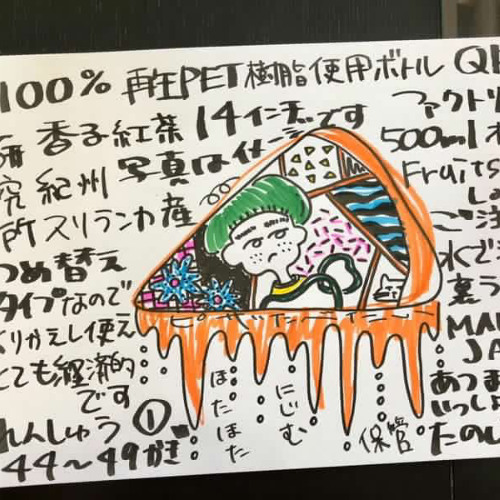 100% 再生PET樹脂使用ボトル
香子紅茶 14インチです
ファクトリ
500ml
究 紀州 写真はイ
Fruits
所 スリランカ産
つめ替え
タイプなので
くりかえし使え
とても経済的
です
れんしゅう ①
44〜49
ご注
水で
裏
MA
JA
あつま
いっし
たの
ほたほた
にじむ
保管